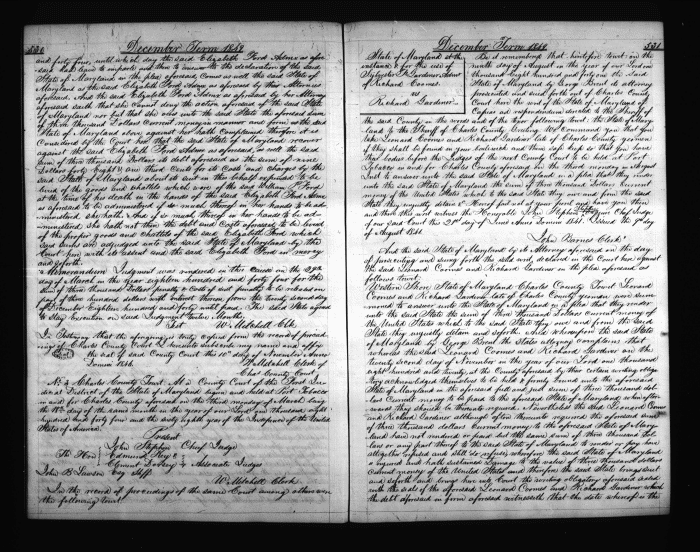 530
December Term 1844
and forty four, until which day the said Elizabeth Ford Admx as afore
said hath leave to imparl and then to answer to the declaration of the said
State of Maryland in the plea aforesaid Comes as well the said State of
Maryland as the said Elizabeth Ford Admx as aforesaid by their attornies
aforesaid. And the said Elizabeth Ford Admx as aforesaid by her attorney
aforesaid saith that she cannot deny the action aforesaid of the said State
of Maryland nor but that she owes unto the said State the aforesaid sum
of three thousand Dollars Current money in manner and form as the said
State of Maryland above against her hath complained Therefore it is
Considered by the Court here that the said State of Maryland recover
against the said Elizabeth Ford Admx as aforesaid as well the said
sum of three thousand Dollars its debt aforesaid as the sum of nine
Dollars forty
State of Maryland about its suit in this behalf expended to be
levied of the goods and chattels which were of the said William Ford
at the time of his death in the hands of the said Elizabeth Ford Admx
as aforesaid to be administered if so much thereof in her hands to be ad-
ministered she hath. And if so much thereof in her hands to be ad-
ministered she hath not then the debt and Costs aforesaid to be levied
of the proper goods and chattels of the said Elizabeth Ford which
said sums are adjudged unto the said State of Maryland by the
Court here with its assent and the said Elizabeth Ford in mercy
and so forth.
Memorandum Judgment was rendered in this cause on the
day of March in the year eighteen hundred and forty four for the
sum of three thousand Dollars penalty & costs of suit penalty to be released on
of three hundred dollars with interest thereon from the twenty second day
of December Eighteen hundred and forty until paid. The said State agreed
to stay Execution on said Judgment twelve Months.
Test W. Mitchell Clk.
In Testimony that the aforegoing is truly copied from the record of proceed
ings of Charles County Court I hereunto subscribe my name and affix
the seal of said County Court this 10th day of November Anno
Domini 1846.
W Mitchell Clerk of
Chas County Court
Charles County Court At a County Court of the Third Ju
dicial District of the State of Maryland begun and held at Port Tobacco
in and for Charles County aforesaid on the third Monday of March being
the 18th day of the same month in the year of our Lord one thousand eight
hundred and forty four and the sixty eighth year of the Independence of the United
States of America
Present
John Stephen Chief Judge
The Hon Edmund Key &
Clement Dorsey Associate Judges
John B Lawson Esq Shff.
W Mitchell Clerk
In the record of proceedings of the same Court among others were
the following towit.
December Term 1844
531
State of Maryland at the
instance & for the use of
Sylvester F. Gardiner Admr
of Richard Coomes.
Richard Gardiner
Be it remembered that heretofore towit on the
ninth day of August in the year of our Lord one
thousand Eight hundred and forty one the said
State of Maryland by George Brent its attorney
prosecuted and sued forth out of Charles County
Court here the writ of the State of Maryland of
Capias ad respondendum directed to the Sheriff of
the said County in the words and of the tenor following towit: the State of Mary
land to the Sheriff of Charles County Greeting We Command you that you
take Leonard Coomes and Richard Gardiner late of Charles County yeomen
if they shall be found in your bailiwick and them safe keep so that you have
their bodies before the Judges of the said County Court to be held at Port
Tobacco in and for Charles County aforesaid on the third monday in August
Inst to answer unto the said State of Maryland in a plea that they render
unto the said State of Maryland the sum of three thousand Dollars current
money of the United States which to the said State they owe and from the said
State they unjustly detain & Hereof fail not at your peril and have you then
and there this writ witness the Honorable John Stephen Esquire Chief Judge
of our said Court this 21st day of June Anno Domini 1841. Issued the 9th day
of August 1841.
John Barnes Clerk
And the said State of Maryland by its Attorney aforesaid on the day
of prosecuting and suing forth the writ and declared in the Court here against
the said Leonard Coomes and Richard Gardiner in the plea aforesaid as
follows towit.
Western Shore State of Maryland Charles County Towit Leonard
Coomes and Richard Gardiner late of Charles County yeomen were sum
moned to answer unto the State of Maryland of a plea that they render
unto the said State the sum of three thousand Dollars current money of
the United States which to the said State they owe and from the said
State they unjustly detain and soforth and whereupon the said State
of Maryland by George Brent the State attorney complains that
whereas the said Leonard Coomes and Richard Gardiner on the
twenty second of November in the year of our Lord one thousand
eight hundred and twenty at the County aforesaid by their certain writing obliga
tory acknowledged themselves to be held & firmly bound unto the aforesaid
State of Maryland in the aforesaid full and just sum of three thousand dol
lars Current money to be paid to the aforesaid State of Maryland whenafter
wards they should be thereunto required. Nevertheless the said Leonard Coomes
and Richard Gardiner although often thereunto requested the aforesaid sum
of three thousand dollars Current money to the aforesaid State of Mary
land have not rendered or paid but the same sum of three thousand Dol
lars or any part thereof to the said State of Maryland to render or pay have
altogether refused and still do refuse, wherefore the said State of Maryland
is injured and hath sustained Damage to the value of three thousand dollars
current money of the United States and therefore the said State brings suit
and soforth and brings here into Court the writing obligatory aforesaid sealed
with the seals of the aforesaid Leonard Coomes and Richard Gardiner which
the debt aforesaid in form aforesaid witnesseth that the date whereof is the